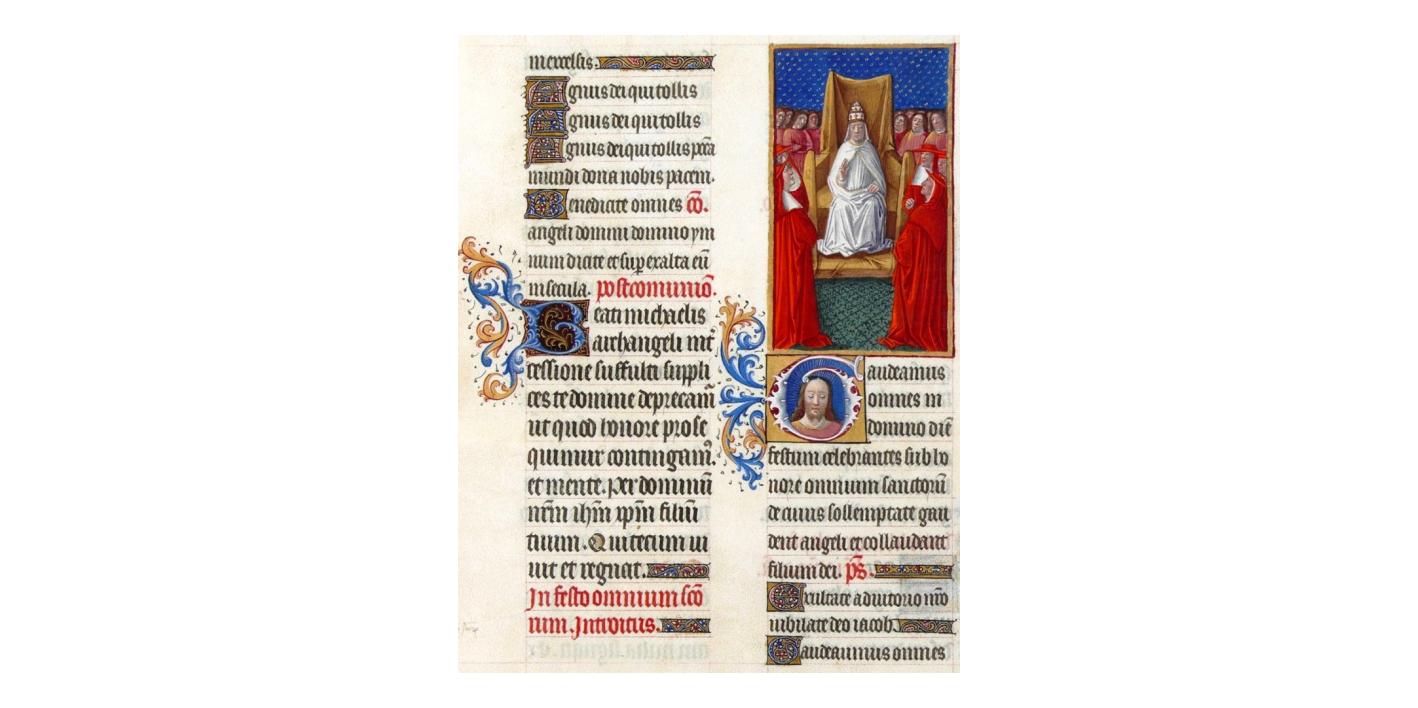 in excelsis.
Agnus dei qui tollis
Agnus dei qui tollis
Agnus dei qui tollis pc̄ca
mundi dona nobis pacem.
Benedicite omnes cō.
angeli domini domino ym
num dicite et superexalta eū
in secula. postcomunio̅.
Beati michaelis
archangeli int̄
cessione suffulti suppli
ces te domine deprecam̄
ut quod honore prose
quimur contingam̄.
et mente. Per dominū
nr̄m ihm̄ xpm̄ filiū
tuum. Qui tecum ui
uit et regnat.
In festo omnium scō
rum. Introitus.
Gaudeamus
omnes in
domino diē
festum celebrantes sub ho
nore omnium sanctorū
de cuius sollemptate gau
dent angeli et collaudant
filium dei. ps̄.
Exultate adiutorio nr̄o
iubilate deo iacob.
Gaudeamus omnes